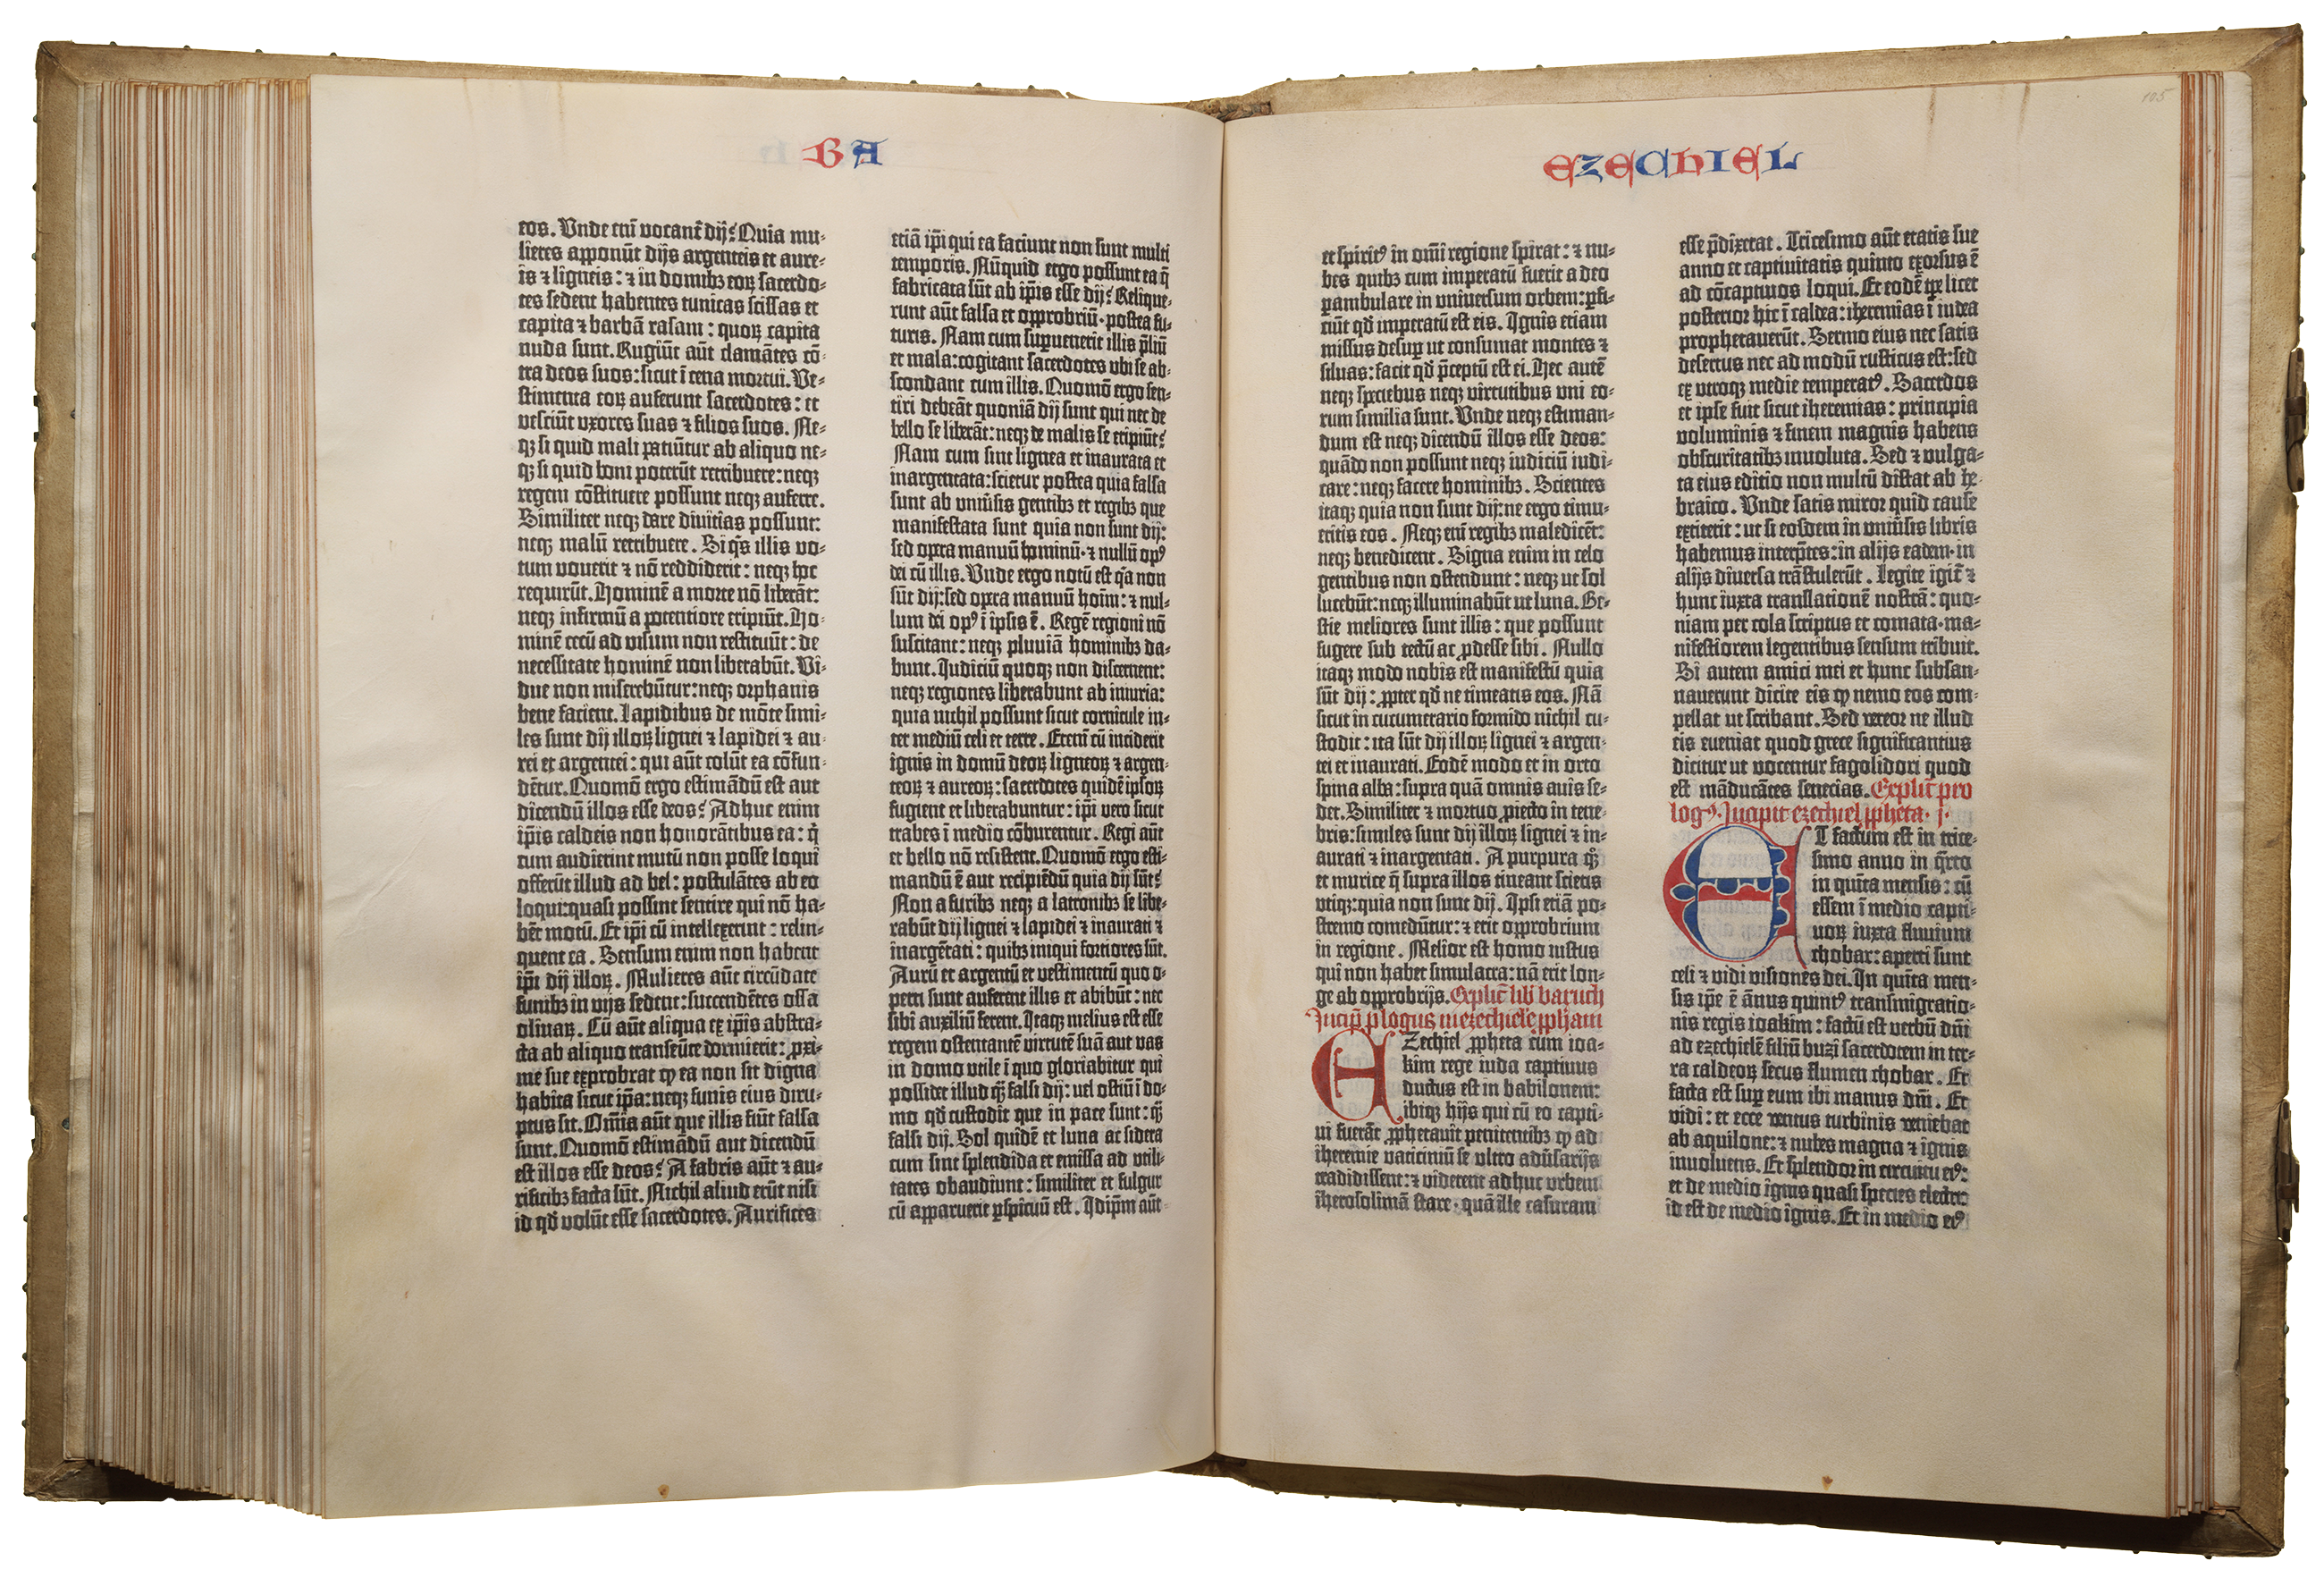 BA
eos. Vnde enī vocant̄ dij? Quia mu-
lieres apponūt dijs argenteis et aure-
is ⁊ ligneis: ⁊ in domibꝫ eoꝝ sacerdo-
tes sedent habentes tunicas scissas et
capita ⁊ barbā rasam: quoꝝ capita
nuda sunt. Rugiūt aūt clamātes cō-
tra deos suos: sicut ī cena mortui. Ve-
stimenta eoꝝ auferunt sacerdotes: et
vesciūt vxores suas ⁊ filios suos. Ne-
qꝫ si quid mali patiūtur ab aliquo ne-
qꝫ si quid boni poterūt retribuere: neqꝫ
regem cōstituere possunt neqꝫ auferre.
Similiter neqꝫ dare diuitias possunt:
neqꝫ malū retribuere. Si q̄s illis vo-
tum vouerit ⁊ nō reddiderit: neqꝫ hoc
requirūt. Hominē a morte nō liberāt:
neqꝫ infirmū a potentiore eripiūt. Ho-
minē cecū ad visum non restituūt: de
necessitate hominē non liberabūt. Vi-
due non miserebūtur: neqꝫ orphanis
bene facient. Lapidibus de mōte simi-
les sunt dij illoꝝ lignei ⁊ lapidei ⁊ au-
rei et argentei: qui aūt colūt ea cōfun-
dētur. Quomō ergo estimādū est aut
dicendū illos esse deos? Adhuc enim
ip̄is caldeis non honorātibus ea: q̄
cum audierint mutū non posse loqui
offerūt illud ad bel: postulātes ab eo
loqui: quasi possint sentire qui nō ha-
bēt motū. Et ip̄i cū intellexerint: relin-
quent ea. Sensum enim non habent
ip̄i dij illoꝝ. Mulieres aūt circūdate
funibꝫ in vijs sedent: succendētes ossa
oliuaꝝ. Cū aūt aliqua ex ip̄is abstra-
cta ab aliquo transeūte dormierit: ꝓxi-
me sue exprobrat ꝙ ea non sit digna
habita sicut ip̄a: neqꝫ funis eius diru-
ptus sit. Om̄ia aūt que illis fiūt falsa
sunt. Quomō estimādū aut dicendū
est illos esse deos? A fabris aūt ⁊ au-
rificibꝫ facta sūt. Nichil aliud erūt nisi
id qd̄ volūt esse sacerdotes. Aurifices
etiā ip̄i qui ea faciunt non sunt multi
temporis. Nūquid ergo possunt ea q̄
fabricata sūt ab ip̄is esse dij? Relique-
runt aūt falsa et opprobriū· postea fu-
turis. Nam cum supuenerit illis p̄liū
et mala: cogitant sacerdotes vbi se ab-
scondant cum illis. Quomō ergo sen-
tiri debeāt quoniā dij sunt qui nec de
bello se liberāt: neqꝫ de malis se eripiūt?
Nam cum sint lignea et inaurata et
inargentata: scietur postea quia falsa
sunt ab vniūsis gentibꝫ et regibꝫ que
manifestata sunt quia non sunt dij:
sed opera manuū hominū· ⁊ nullū opꝰ
dei cū illis. Vnde ergo notū est q̄a non
sūt dij: sed opera manuū hoīm: ⁊ nul-
lum dei opꝰ ī ipsis ē. Regē regioni nō
suscitant: neqꝫ pluuiā hominibꝫ da-
bunt. Iudiciū quoqꝫ non discernent:
neqꝫ regiones liberabunt ab iniuria:
quia nichil possunt sicut cornicule in-
ter mediū celi et terre. Etenī cū inciderit
ignis in domū deoꝝ ligneoꝝ ⁊ argen-
teoꝝ ⁊ aureoꝝ: sacerdotes quidē ipsoꝝ
fugient et liberabuntur: ip̄i vero sicut
trabes ī medio cōburentur. Regi aūt
et bello nō resistent. Quomō ergo esti-
mandū ē aut recipiēdū quia dij sūt?
Non a furibꝫ neqꝫ a latronibꝫ se libe-
rabūt dij lignei ⁊ lapidei ⁊ inaurati ⁊
inargētati: quibꝫ iniqui fortiores sūt.
Aurū et argentū et vestimentū quo o-
perti sunt auferent illis et abibūt: nec
sibi auxiliū ferent. Itaqꝫ melius est esse
regem ostentantē virtutē suā aut vas
in domo vtile ī quo gloriabitur qui
possidet illud q̄ꝫ falsi dij: uel ostiū ī do-
mo qd̄ custodit que in pace sunt: q̄ꝫ
falsi dij. Sol quidē et luna ac sidera
cum sint splendida et emissa ad vtili-
tates obaudiunt: similiter et fulgur
cū apparuerit ꝑspicuū est. Idip̄m aūt
EZECHIEL
105
et spiritꝰ in om̄i regione spirat: ⁊ nu-
bes quibꝫ cum imperatū fuerit a deo
ꝑambulare in vniuersum orbem: ꝑfi-
ciūt qd̄ imperatū est eis. Ignis etiam
missus desuꝑ ut consumat montes ⁊
siluas: facit qd̄ p̄ceptū est ei. Hec autē
neqꝫ speciebus neqꝫ virtutibus vni eo-
rum similia sunt. Vnde neqꝫ estiman-
dum est neqꝫ dicendū illos esse deos:
quādo non possunt neqꝫ iudiciū iudi-
care: neqꝫ facere hominibꝫ. Scientes
itaqꝫ quia non sunt dij: ne ergo timu-
eritis eos. Neqꝫ enī regibꝫ maledicēt:
neqꝫ benedicent. Signa enim in celo
gentibus non ostendunt: neqꝫ ut sol
lucebūt: neqꝫ illuminabūt ut luna. Be-
stie meliores sunt illis: que possunt
fugere sub tectū ac ꝓdesse sibi. Nullo
itaqꝫ modo nobis est manifestū quia
sūt dij: ꝓpter qd̄ ne timeatis eos. Nā
sicut in cucumerario formido nichil cu-
stodit: ita sūt dij illoꝝ lignei ⁊ argen-
tei et inaurati. Eodē modo et in orto
spina alba: supra quā omnis auis se-
det. Similiter ⁊ mortuo ꝓiecto in tene-
bris: similes sunt dij illoꝝ lignei ⁊ in-
aurati ⁊ inargentati. A purpura q̄ꝫ
et murice q̄ supra illos tineant scietis
vtiqꝫ: quia non sunt dij. Ipsi etiā po-
stremo comedūtur: ⁊ erit opprobrium
in regione. Melior est homo iustus
qui non habet simulacra: nā erit lon-
ge ab opprobrijs. Explic̄ lib̄ baruch
Incip̄ ꝓlogus in ezechielē ꝓph̄am
EZechiel ꝓpheta cum ioa-
kim rege iuda captiuus
ductus est in babilonem:
ibiqꝫ hijs qui cū eo capti-
ui fuerāt ꝓphetauit penitentibꝫ ꝙ ad
iheremie vaticiniū se vltro adūsarijs
tradidissent: ⁊ viderent adhuc vrbem
iherosolimā stare· quā ille casuram
esse p̄dixerat. Tricesimo aūt etatis sue
anno et captiuitatis quinto exorsus ē
ad cōcaptiuos loqui. Et eodē tꝑe licet
posterior hic ī caldea: iheremias ī iudea
prophetauerūt. Sermo eius nec satis
desertus nec ad modū rusticus est: sed
ex vtroqꝫ medie temperatꝰ. Sacerdos
et ipse fuit sicut iheremias: principia
voluminis ⁊ finem magnis habens
obscuritatibꝫ inuoluta. Sed ⁊ vulga-
ta eius editio non multū distat ab he-
braico. Vnde satis miror quid cause
extiterit: ut si eosdem in vniūsis libris
habemus interp̄tes: in alijs eadem· in
alijs diuersa trāstulerūt. Legite igit̄ ⁊
hunc iuxta translationē nostrā: quo-
niam per cola scriptus et comata· ma-
nifestiorem legentibus sensum tribuit.
Si autem amici mei et hunc subsan-
nauerunt dicite eis ꝙ nemo eos com-
pellat ut scribant. Sed vereor ne illud
eis eueniat quod grece significantius
dicitur ut vocentur fagolidori quod
est māducātes senecias. Explic̄ pro
logꝰ. Incipit ezechiel ꝓpheta· j·
ET factum est in trice-
simo anno in q̄rto
in quīta mensis: cū
essem ī medio capti-
uoꝝ iuxta fluuium
chobar: aperti sunt
celi ⁊ vidi visiones dei. In quīta men-
sis ip̄e ē ānus quintꝰ transmigratio-
nis regis ioakim: factū est verbū dn̄i
ad ezechielē filiū buzi sacerdotem in ter-
ra caldeoꝝ secus flumen chobar. Et
facta est suꝑ eum ibi manus dn̄i. Et
vidi: et ecce ventus turbinis veniebat
ab aquilone: ⁊ nubes magna ⁊ ignis
inuoluens. Et splendor in circuitu eiꝰ:
et de medio ignis quasi species electri:
id est de medio ignis. Et in medio eiꝰ